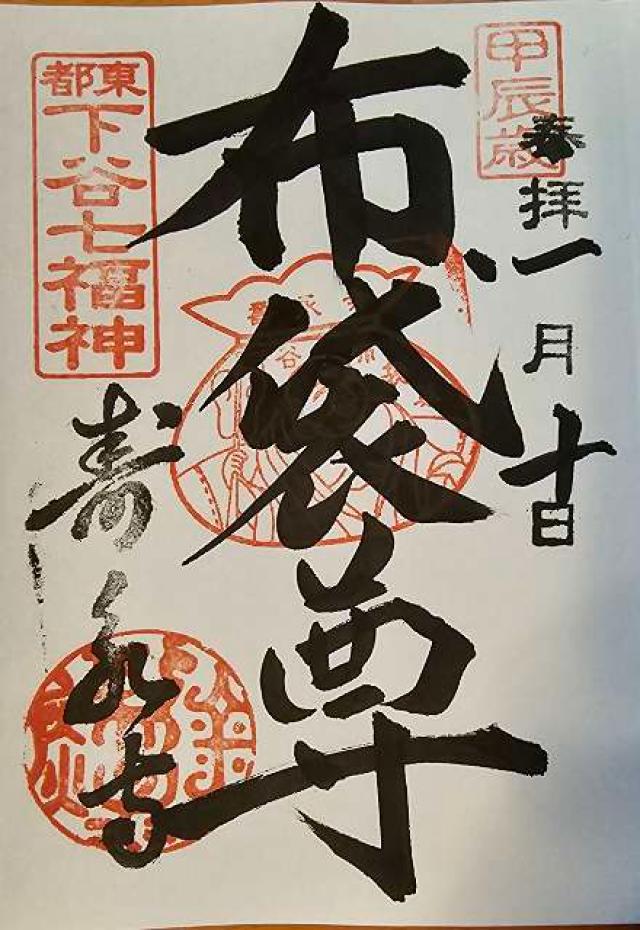 甲辰歳
奉拝
一月十日
布袋尊
東都
下谷七福神
寿永寺